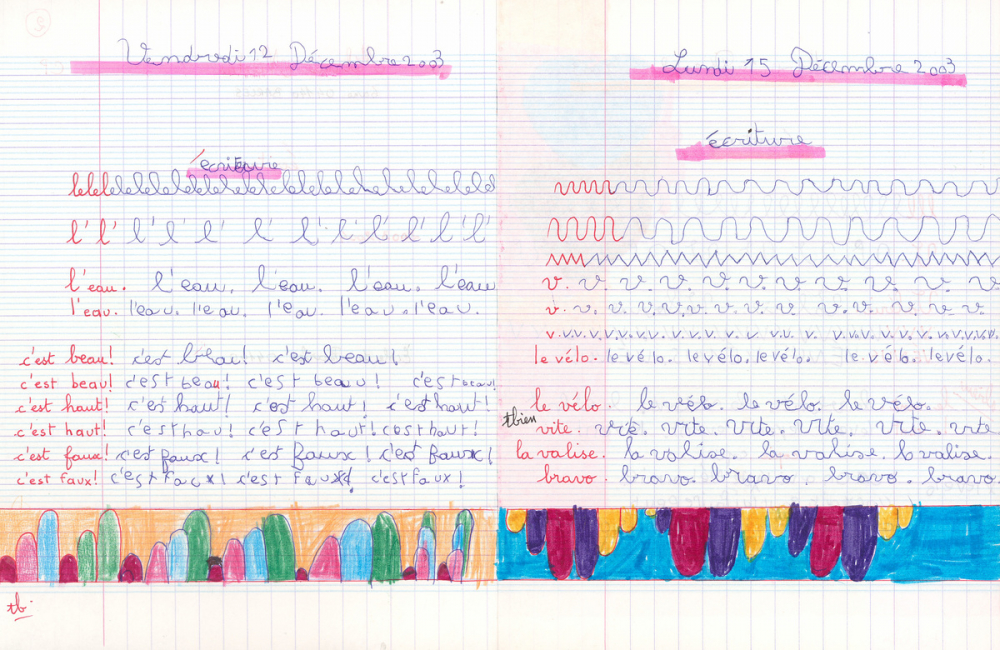 Vendredi 12 Décembre 2003
écriture
lelelelelelelelelelelelelelelelelele
l' l' l' l' l' l' l' l' l' l' l' l'
l'eau. l'eau. l'eau. l'eau. l'eau
l'eau. l'eau. l'eau. l'eau. l'eau. l'eau.
c'est beau! c'est beau! c'est beau!
c'est beau! c'est beau! c'est beau! c'est beau!
c'est haut! c'est haut! c'est haut! c'est haut!
c'est haut! c'est hau! c'est haut! c'est haut!
c'est faux! c'est faux! c'est faux! c'est faux!
c'est faux! c'est faux! c'est faux! c'est faux!
tb.
Lundi 15 Décembre 2003
écriture
v. v. v. v. v. v. v. v. v. v. v.
v. v. v. v. v. v. v. v. v. v. v. v. v.
v. v. v. v. v. v. v. v. v. v. v. v. v. v. v. v. v. v. v.
le vélo. le vélo. le vélo. le vélo. le vélo. le vélo.
le vélo. le vélo. le vélo. le vélo.
tbien
vite. vite. vite. vite. vite. vite. vite
la valise. la valise. la valise. la valise.
bravo. bravo. bravo. bravo. bravo.